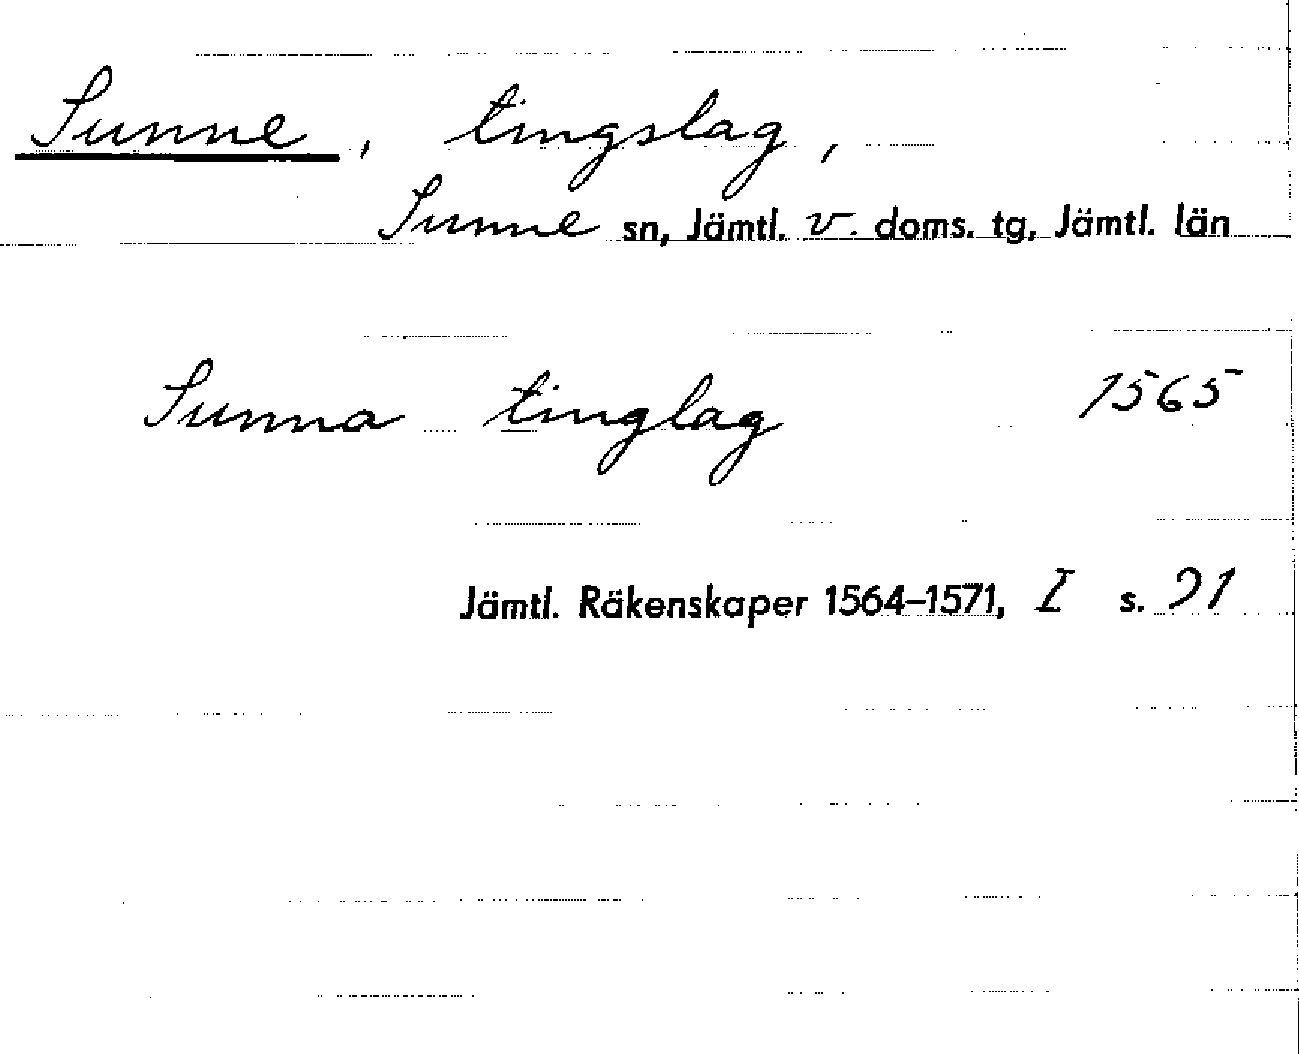 Sunne, tingslag,
Sunne sn, Jämtl. v. doms. tg, Jämtl. län
Sunna tinglag 1565
Jämtl. Räkenskaper 1564-1571, I s. 91